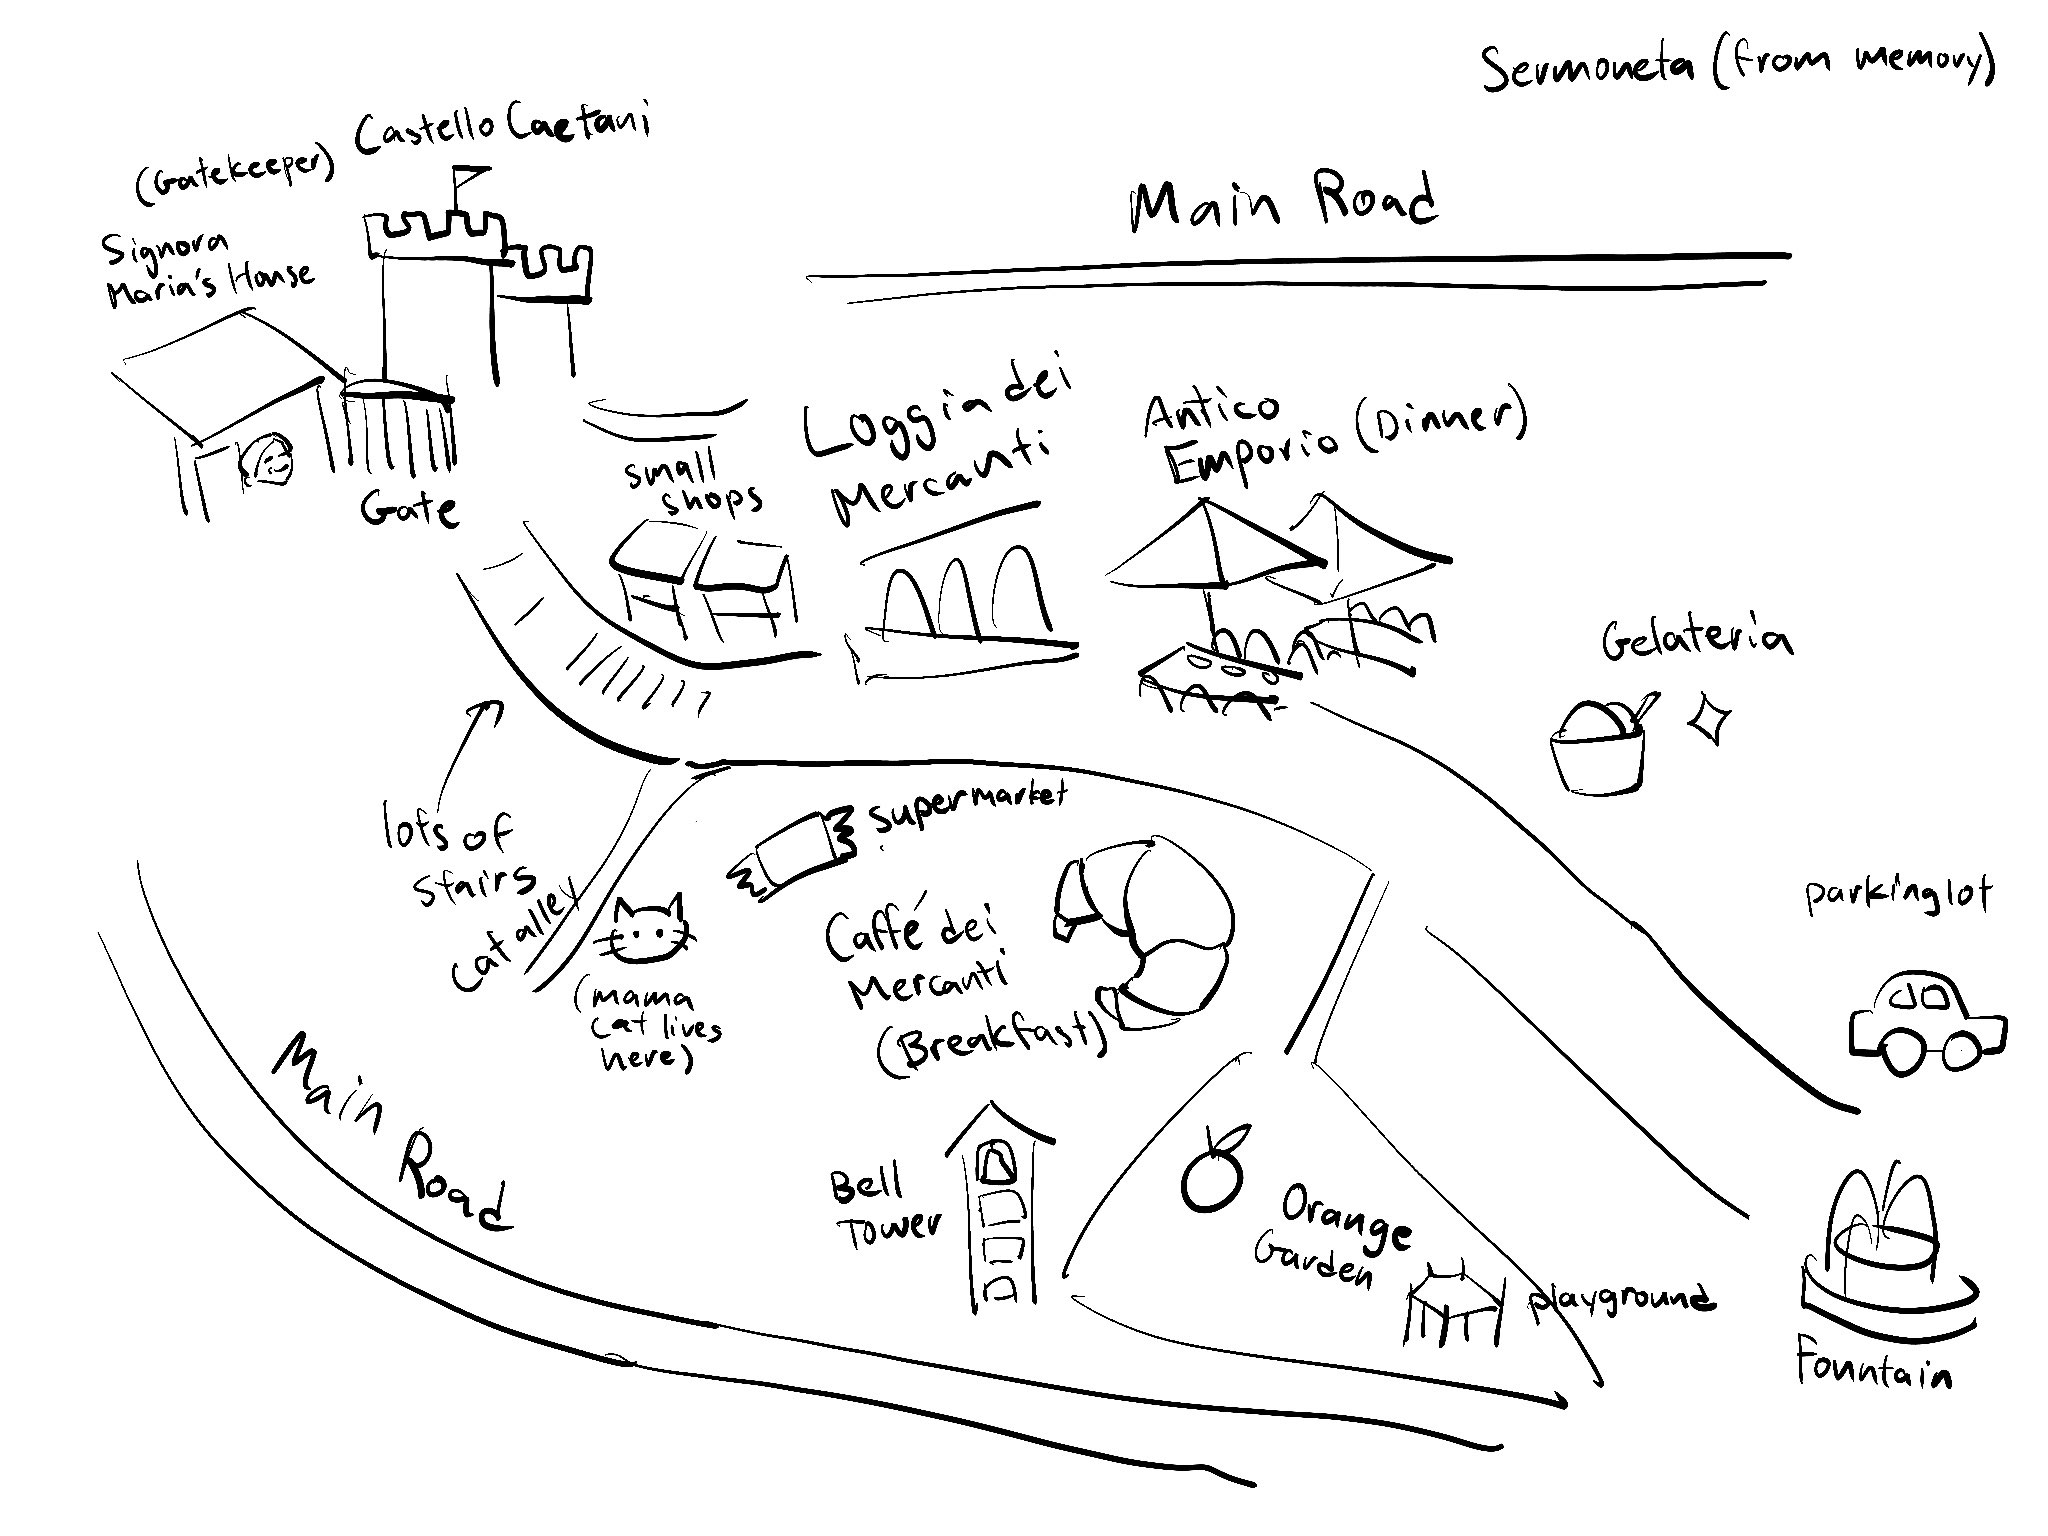 Sermoneta (from memory)
Castello Caetani
(Gatekeeper)
Signora
Maria's House
Main Road
Gate
small
shops
Loggia dei
Mercanti
Antico
Emporio (Dinner)
Gelateria
lots of
stairs
cat alley
supermarket
(mama
cat lives
here)
Caffé dei
Mercanti
(Breakfast)
parking lot
Main Road
Bell
Tower
Orange
Garden
playground
Fountain